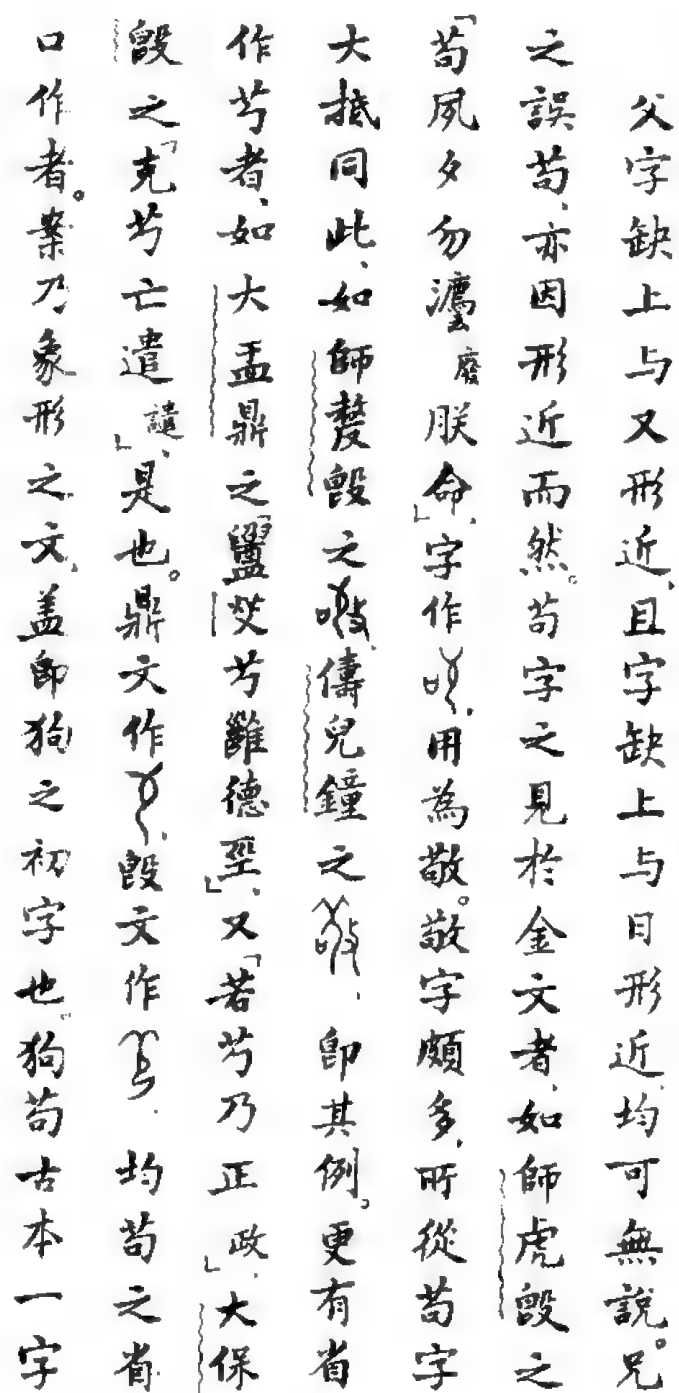 父字缺上与又形近、且字缺上与日形近、均可無說。兄
之誤茍、亦因形近而然。茍字之見於金文者、如師虎𣪘之
「茍夙夕勿灋廢朕命」、字作、用為敬。敬字頗多、所從茍字
大抵同此、如師嫠𣪘之、儔兒鐘之、即其例。更有省
作芍者、如大盂鼎之「㸚芍雝德巠」、又「若芍乃正政」、大保
𣪘之「克芍亡遣譴」、是也。鼎文作、𣪘文作、均茍之省
口作者。案乃象形之文、蓋即狗之初字也。狗茍古本一字